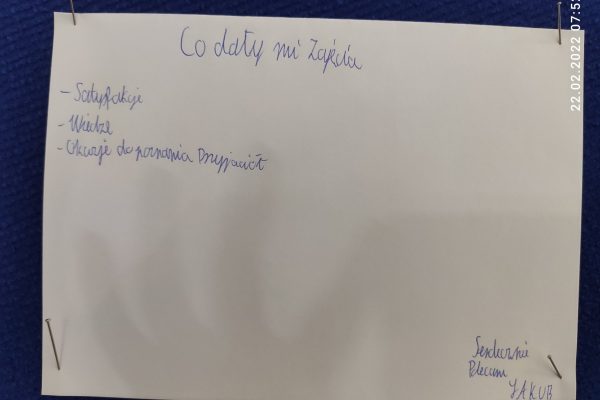 Co dały mi Zajęcia
- Satysfakcje
- Wiedze
- Okazje do poznania Przyjaciół
Serdecznie
Polecam
JAKUB
22.02.2022 07:5